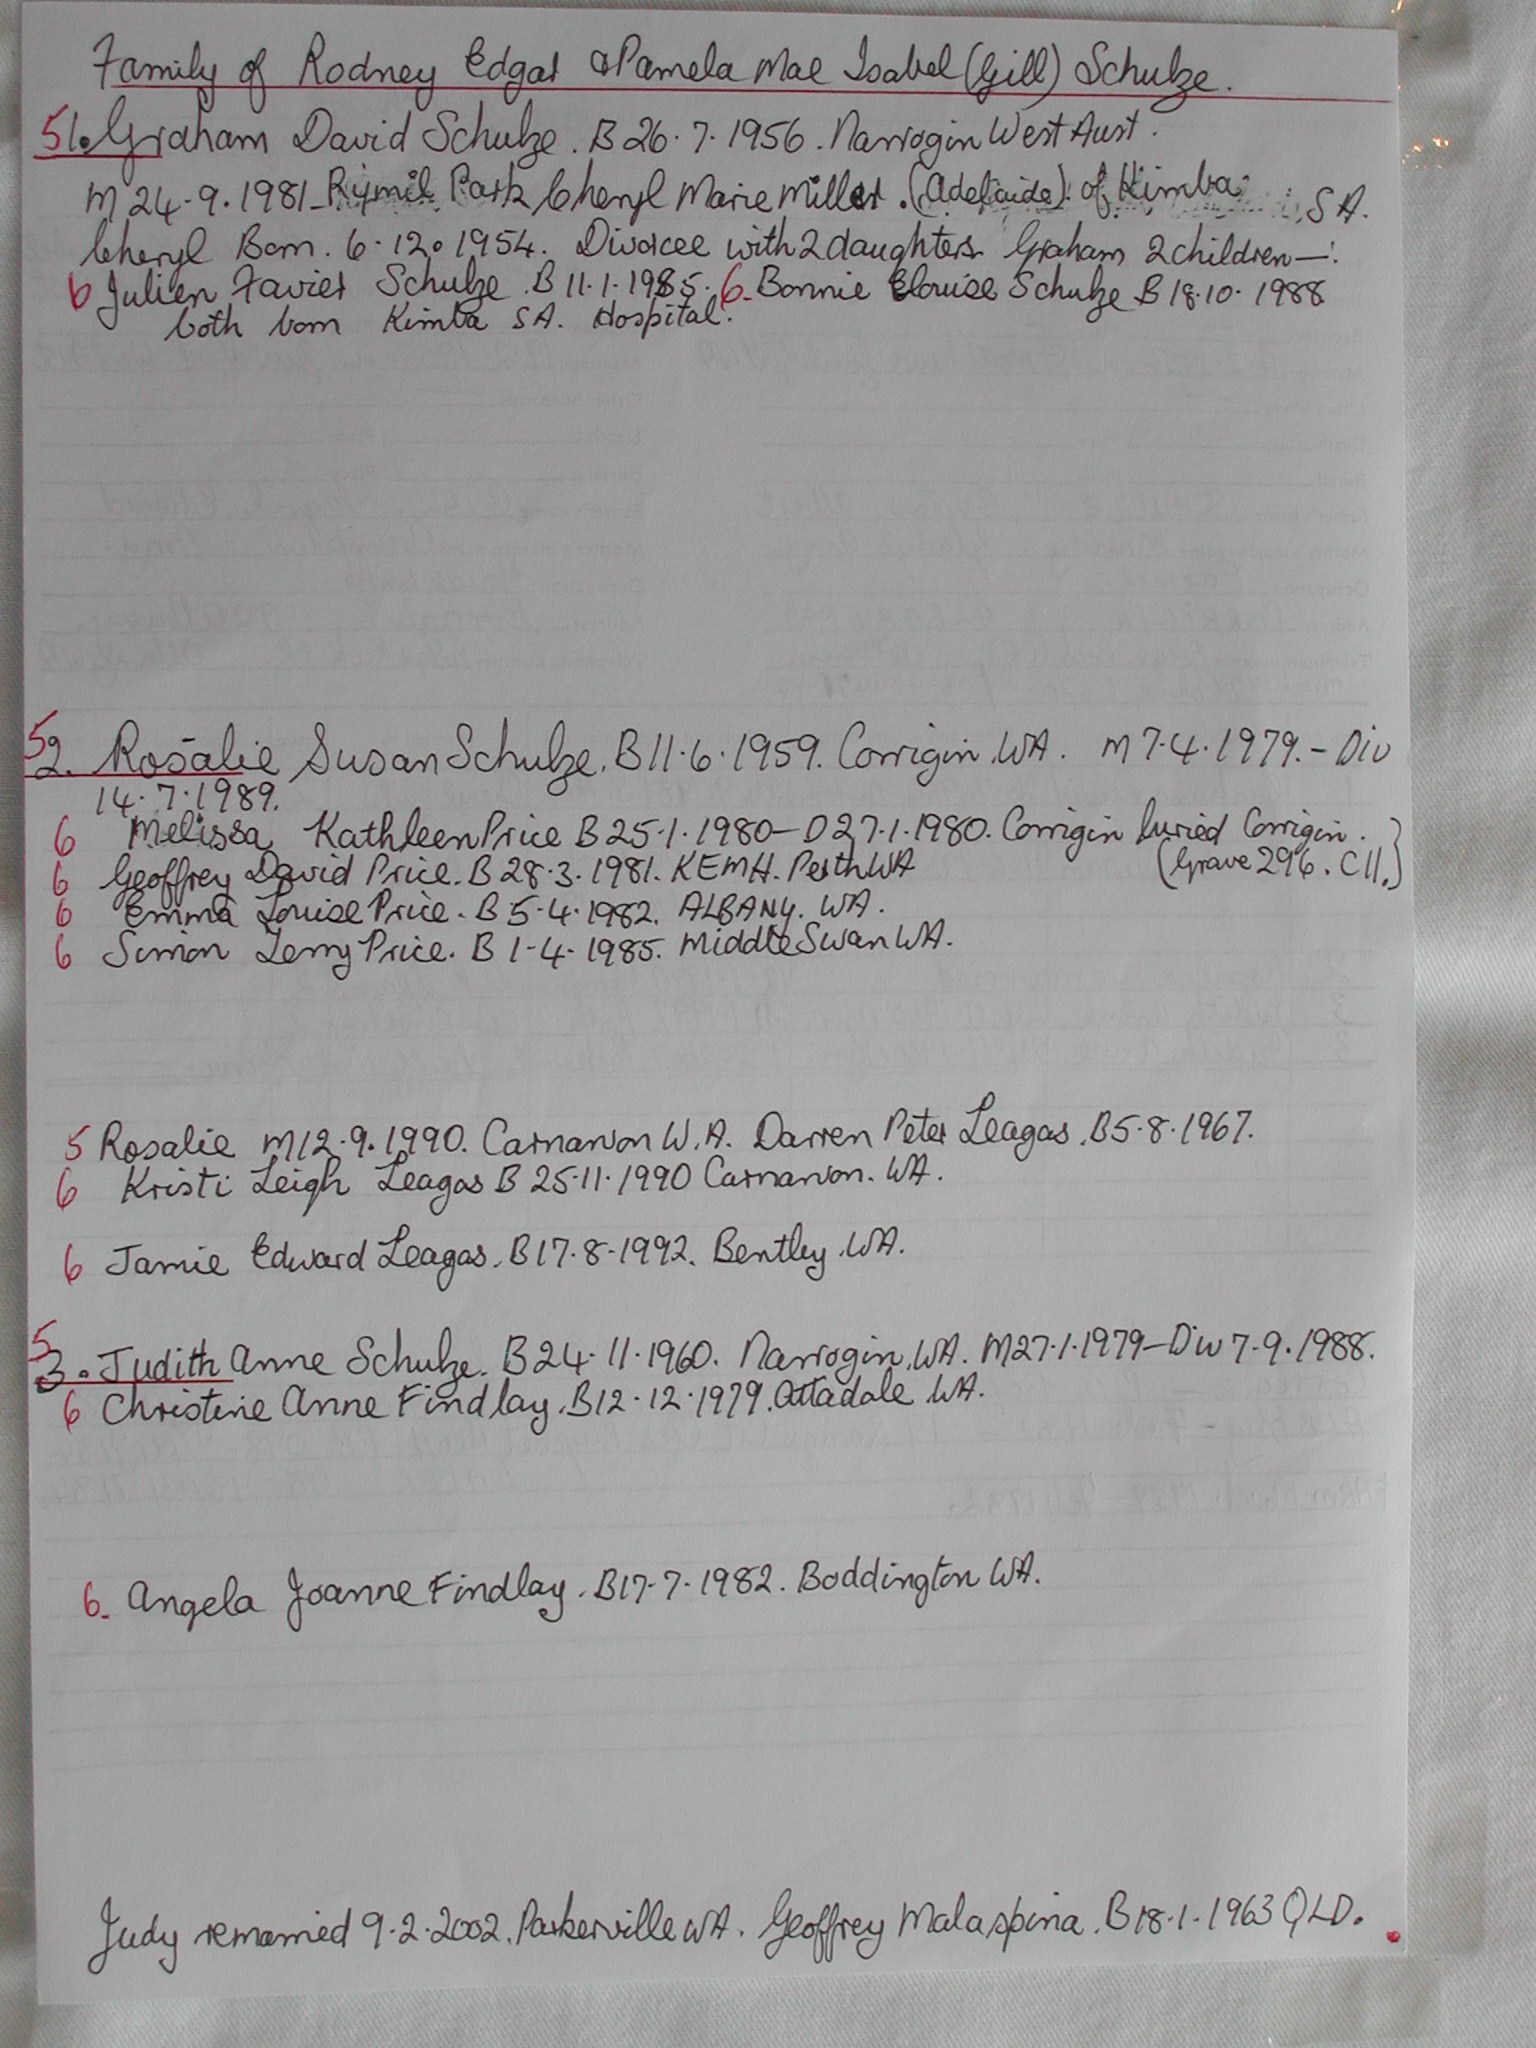 Family of Rodney Edgar & Pamela Mae Isabel (Gill) Schulze.
5 1. Graham David Schulze. B 26.7.1956. Narrogin West Aust.
M 24-9.1981 Rymil Park Cheryl Marie Miller. (Adelaide) of Kimba, SA.
Cheryl Born. 6.12.1954. Divorcee with 2 daughters Graham 2 children—:
6 Julien Xavier Schulze. B 11.1.1985. 6. Bonnie Elouise Schulze B 18.10.1988
both born Kimba SA. Hospital.
5 2. Rosalie Susan Schulze. B 11.6.1959. Corrigin WA. M 7.4.1979. - Div
14.7.1989.
6 Melissa Kathleen Price B 25.1.1980 - D 27.1.1980. Corrigin buried Corrigin.
(Grave 296. C11.)
6 Geoffrey David Price. B 28.3.1981. KEMH. Perth WA
6 Emma Louise Price. B 5-4-1982. ALBANY. WA.
6 Simon Terry Price. B 1-4-1985. Middle Swan WA.
5 Rosalie M 12.9.1990. Carnarvon W.A. Darren Peter Leagas. B 5.8.1967.
6 Kristi Leigh Leagas B 25.11.1990 Carnarvon. WA.
6 Jamie Edward Leagas. B 17.8.1992. Bentley. WA.
5 3. Judith Anne Schulze. B 24.11.1960. Narrogin. WA. M 27.1.1979 - Div 7.9.1988.
6 Christine Anne Findlay. B 12.12.1979. Attadale WA.
6. Angela Joanne Findlay. B 17.7.1982. Boddington WA.
Judy remarried 9.2.2002. Parkerville WA. Geoffrey Malaspina. B 18.1.1963 QLD.